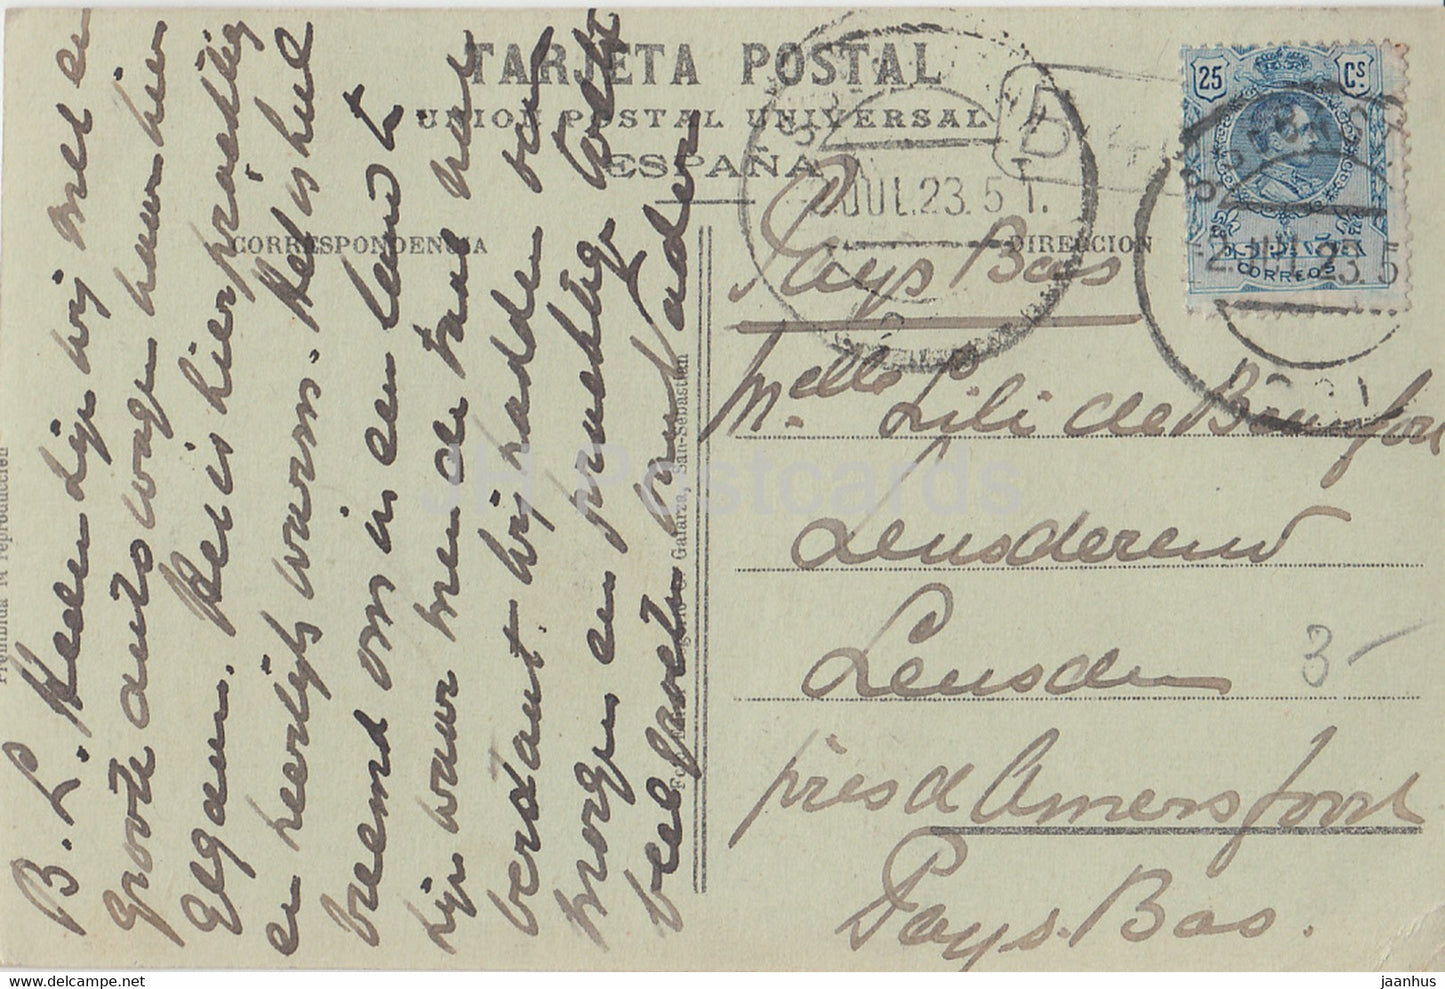 TARJETA POSTAL
UNION POSTAL UNIVERSAL
ESPAÑA
CORRESPONDENCIA
DIRECCION
25 Cs
ESPAÑA
CORREOS
2.JUL.23.5T.
2.JUL.23.5
B
Pays Bas
Melle Lili de Beaufort
Leusderend
Leusden
près d'Amersfoort
Pays-Bas.
3-
B. L. Heden zijn wij met en
groote auto wagen naar hier
gegaan. Het is hier prachtig
en heerlijk warm. Het is heel
vreemd om in een land te
zijn waar men de taal niet
verstaat. Wij hadden van
morgen een prachtig tocht
veel groeten van Vader
Galarza, San-Sebastian
reproducción
JH Postcards
www.delcampe.net
jaanhus